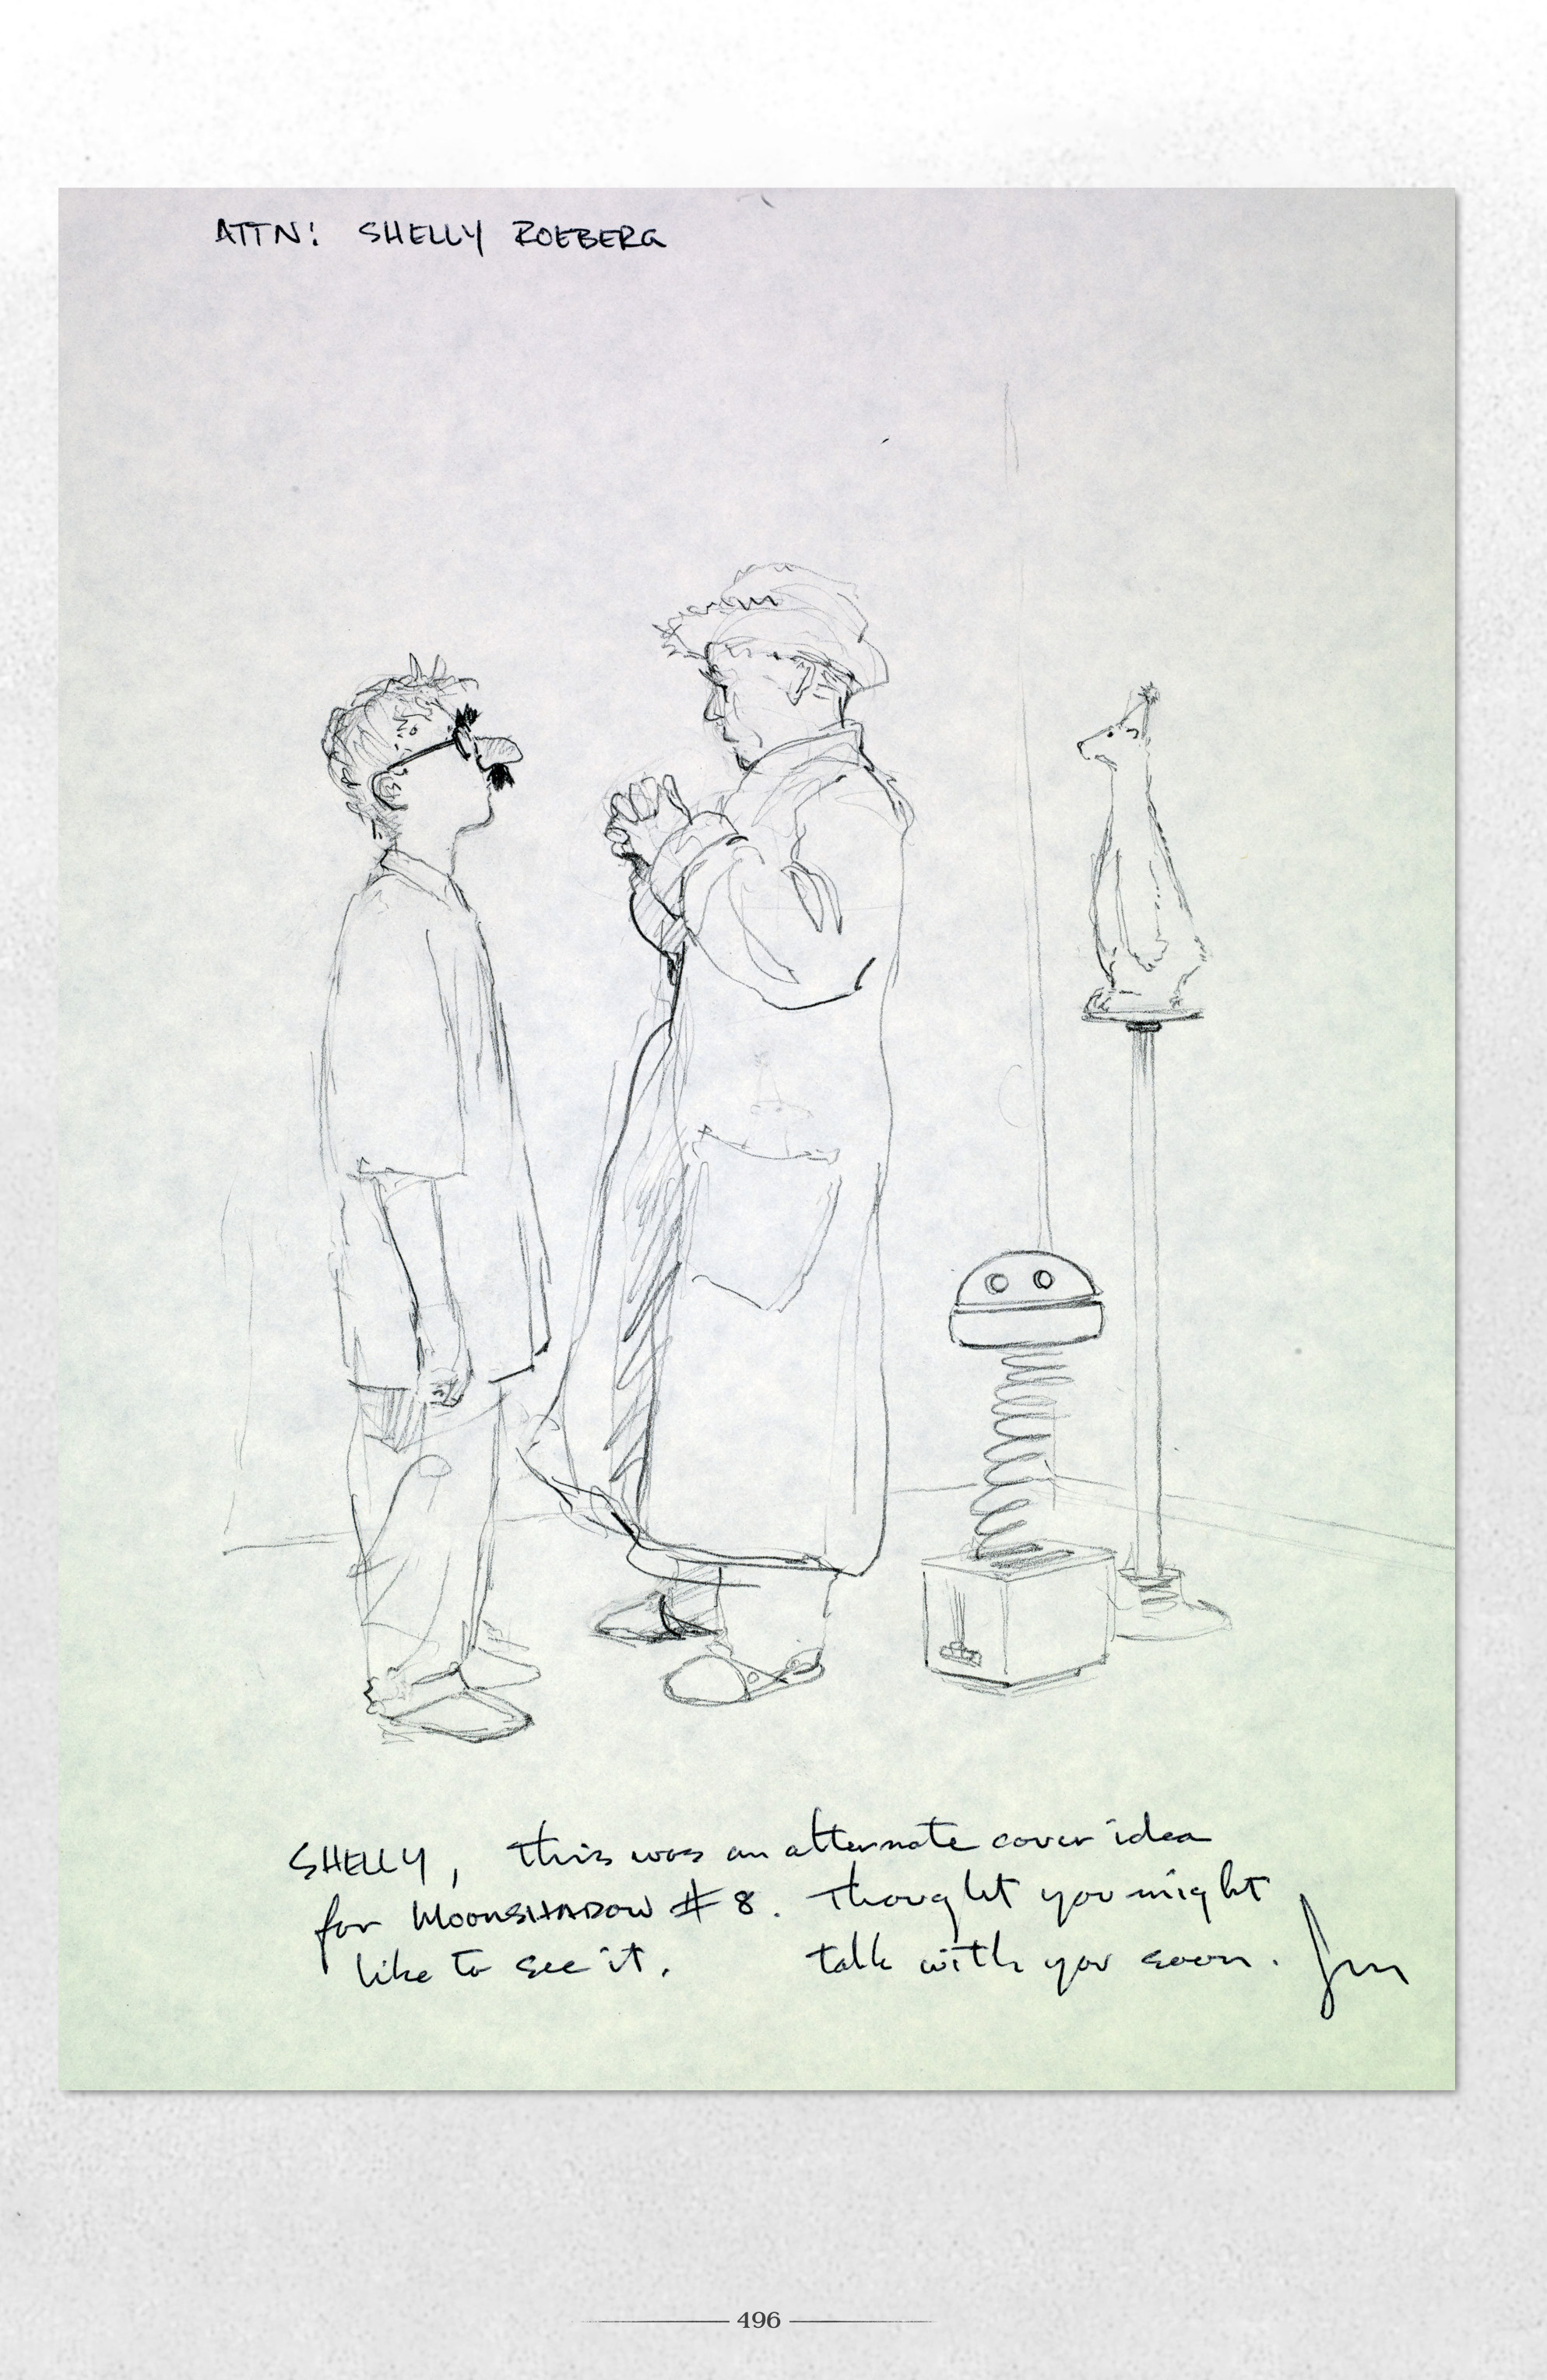 ATTN: SHELLY ROEBERG
SHELLY, this was an alternate cover idea
for MOONSHADOW #8. Thought you might
like to see it. talk with you soon.
496